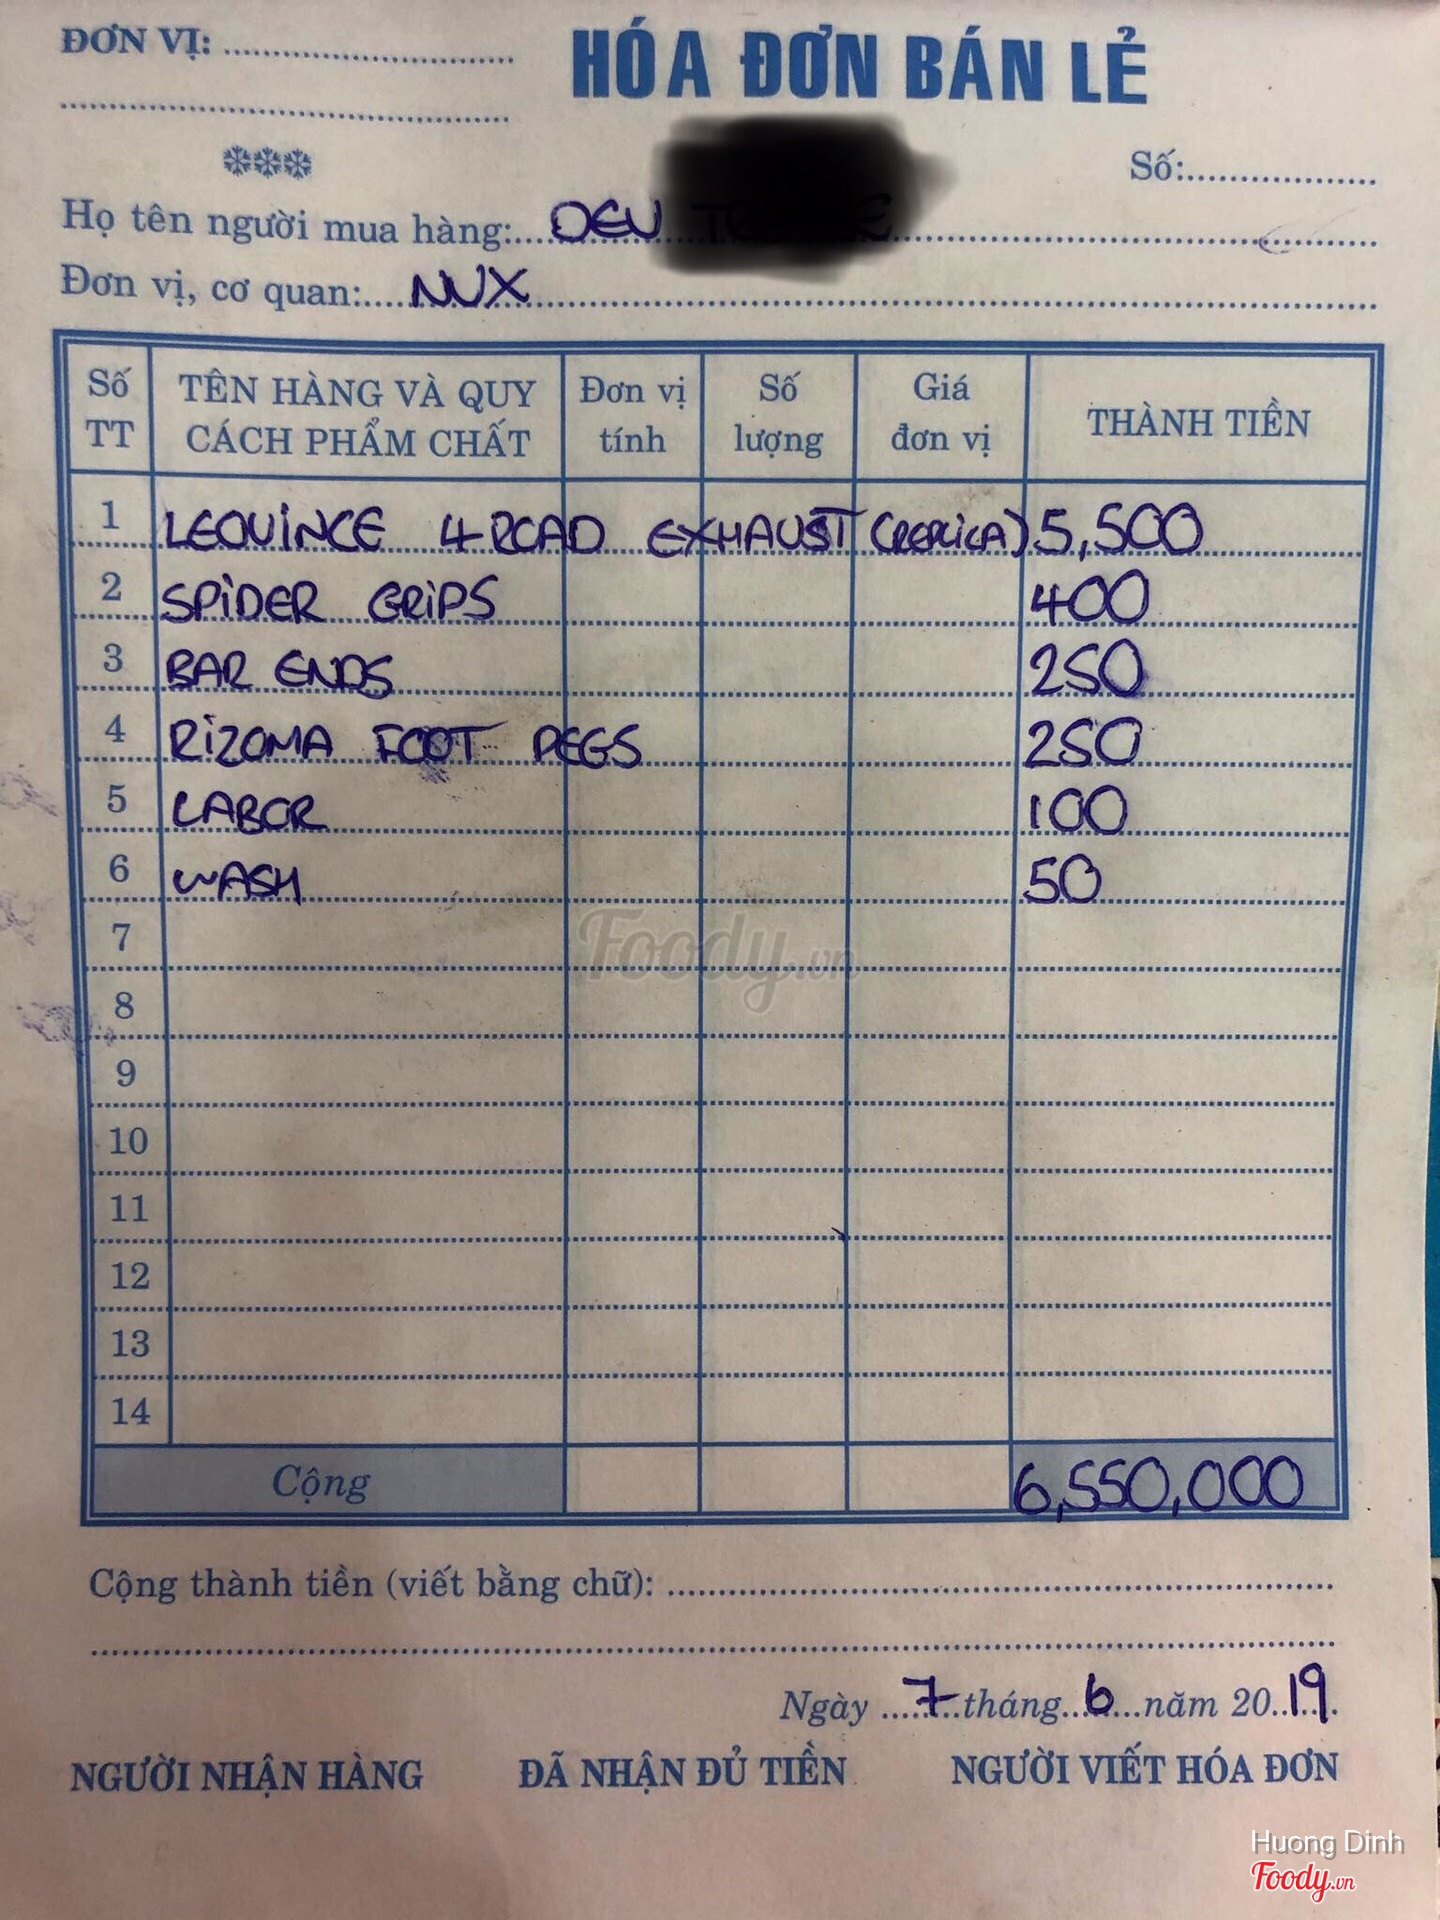 ĐƠN VỊ: ........................
HÓA ĐƠN BÁN LẺ
Số:..................
Họ tên người mua hàng:.... DEV
Đơn vị, cơ quan:.... NVX
Số TT TÊN HÀNG VÀ QUY CÁCH PHẨM CHẤT Đơn vị tính Số lượng Giá đơn vị THÀNH TIỀN
1 LEOVINCE 4-ROAD EXHAUST (REPLICA) 5,500
2 SPIDER GRIPS 400
3 BAR ENDS 250
4 RIZOMA FOOT PEGS 250
5 LABOR 100
6 WASH 50
7
8
9
10
11
12
13
14
Foody.vn
Cộng 6,550,000
Cộng thành tiền (viết bằng chữ): ........................
Ngày ..7..tháng..6..năm 20..19.
NGƯỜI NHẬN HÀNG ĐÃ NHẬN ĐỦ TIỀN NGƯỜI VIẾT HÓA ĐƠN
Huong Dinh
Foody.vn